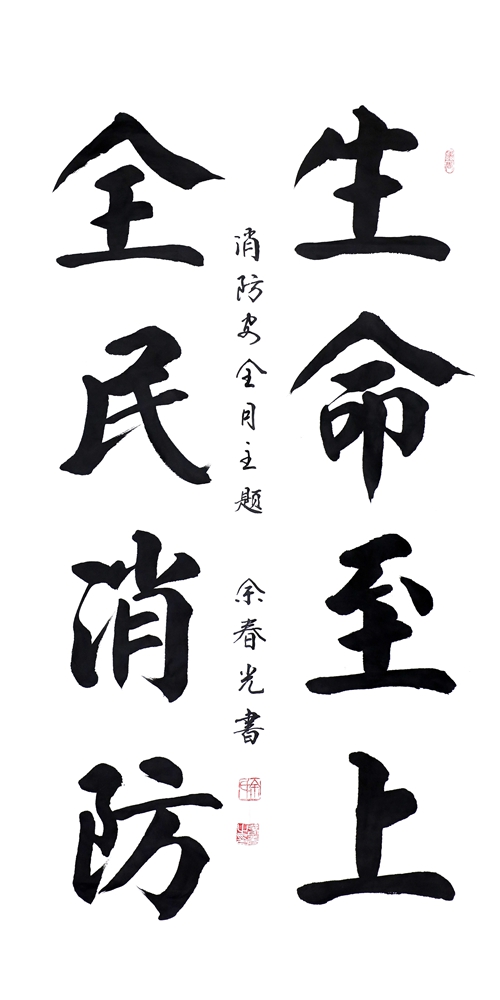 生命至上
全民消防
消防安全月主题 余春光书